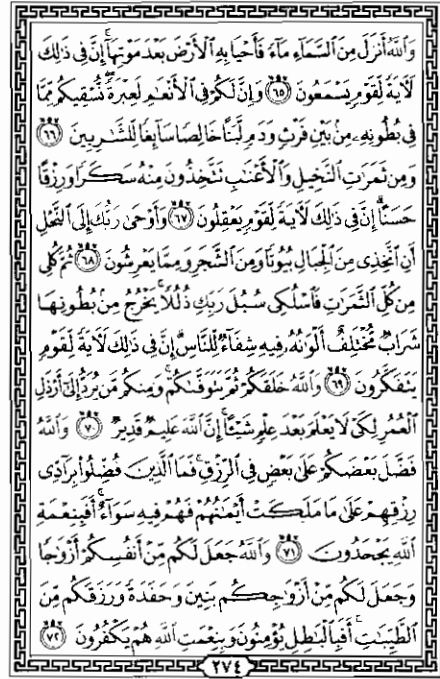 وَٱللَّهُ أَنزَلَ مِنَ ٱلسَّمَآءِ مَآءً فَأَحْيَا بِهِ ٱلْأَرْضَ بَعْدَ مَوْتِهَآ ۚ إِنَّ فِى ذَٰلِكَ
لَءَايَةً لِّقَوْمٍ يَسْمَعُونَ ٦٥ وَإِنَّ لَكُمْ فِى ٱلْأَنْعَٰمِ لَعِبْرَةً ۖ نُّسْقِيكُم مِّمَّا
فِى بُطُونِهِۦ مِنۢ بَيْنِ فَرْثٍ وَدَمٍ لَّبَنًا خَالِصًا سَآئِغًا لِّلشَّٰرِبِينَ ٦٦
وَمِن ثَمَرَٰتِ ٱلنَّخِيلِ وَٱلْأَعْنَٰبِ تَتَّخِذُونَ مِنْهُ سَكَرًا وَرِزْقًا
حَسَنًا ۗ إِنَّ فِى ذَٰلِكَ لَءَايَةً لِّقَوْمٍ يَعْقِلُونَ ٦٧ وَأَوْحَىٰ رَبُّكَ إِلَى ٱلنَّحْلِ
أَنِ ٱتَّخِذِى مِنَ ٱلْجِبَالِ بُيُوتًا وَمِنَ ٱلشَّجَرِ وَمِمَّا يَعْرِشُونَ ٦٨ ثُمَّ كُلِى
مِن كُلِّ ٱلثَّمَرَٰتِ فَٱسْلُكِى سُبُلَ رَبِّكِ ذُلُلًا ۚ يَخْرُجُ مِنۢ بُطُونِهَا
شَرَابٌ مُّخْتَلِفٌ أَلْوَٰنُهُۥ فِيهِ شِفَآءٌ لِّلنَّاسِ ۗ إِنَّ فِى ذَٰلِكَ لَءَايَةً لِّقَوْمٍ
يَتَفَكَّرُونَ ٦٩ وَٱللَّهُ خَلَقَكُمْ ثُمَّ يَتَوَفَّىٰكُمْ ۚ وَمِنكُم مَّن يُرَدُّ إِلَىٰٓ أَرْذَلِ
ٱلْعُمُرِ لِكَىْ لَا يَعْلَمَ بَعْدَ عِلْمٍ شَيْـًٔا ۚ إِنَّ ٱللَّهَ عَلِيمٌ قَدِيرٌ ٧٠ وَٱللَّهُ
فَضَّلَ بَعْضَكُمْ عَلَىٰ بَعْضٍ فِى ٱلرِّزْقِ ۚ فَمَا ٱلَّذِينَ فُضِّلُوا۟ بِرَآدِّى
رِزْقِهِمْ عَلَىٰ مَا مَلَكَتْ أَيْمَٰنُهُمْ فَهُمْ فِيهِ سَوَآءٌ ۚ أَفَبِنِعْمَةِ
ٱللَّهِ يَجْحَدُونَ ٧١ وَٱللَّهُ جَعَلَ لَكُم مِّنْ أَنفُسِكُمْ أَزْوَٰجًا
وَجَعَلَ لَكُم مِّنْ أَزْوَٰجِكُم بَنِينَ وَحَفَدَةً وَرَزَقَكُم مِّنَ
ٱلطَّيِّبَٰتِ ۚ أَفَبِٱلْبَٰطِلِ يُؤْمِنُونَ وَبِنِعْمَتِ ٱللَّهِ هُمْ يَكْفُرُونَ ٧٢
٢٧٤